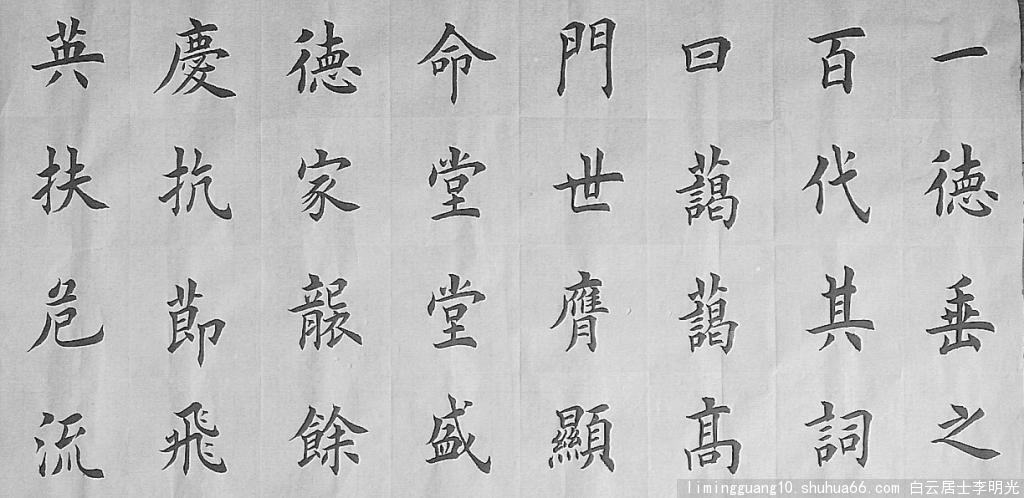 一德垂之
百代其詞
曰藹藹高
門世膺顯
命堂堂盛
德家襲餘
慶抗節飛
英扶危流
limingguang10.shuhua66.com 白云居士李明光